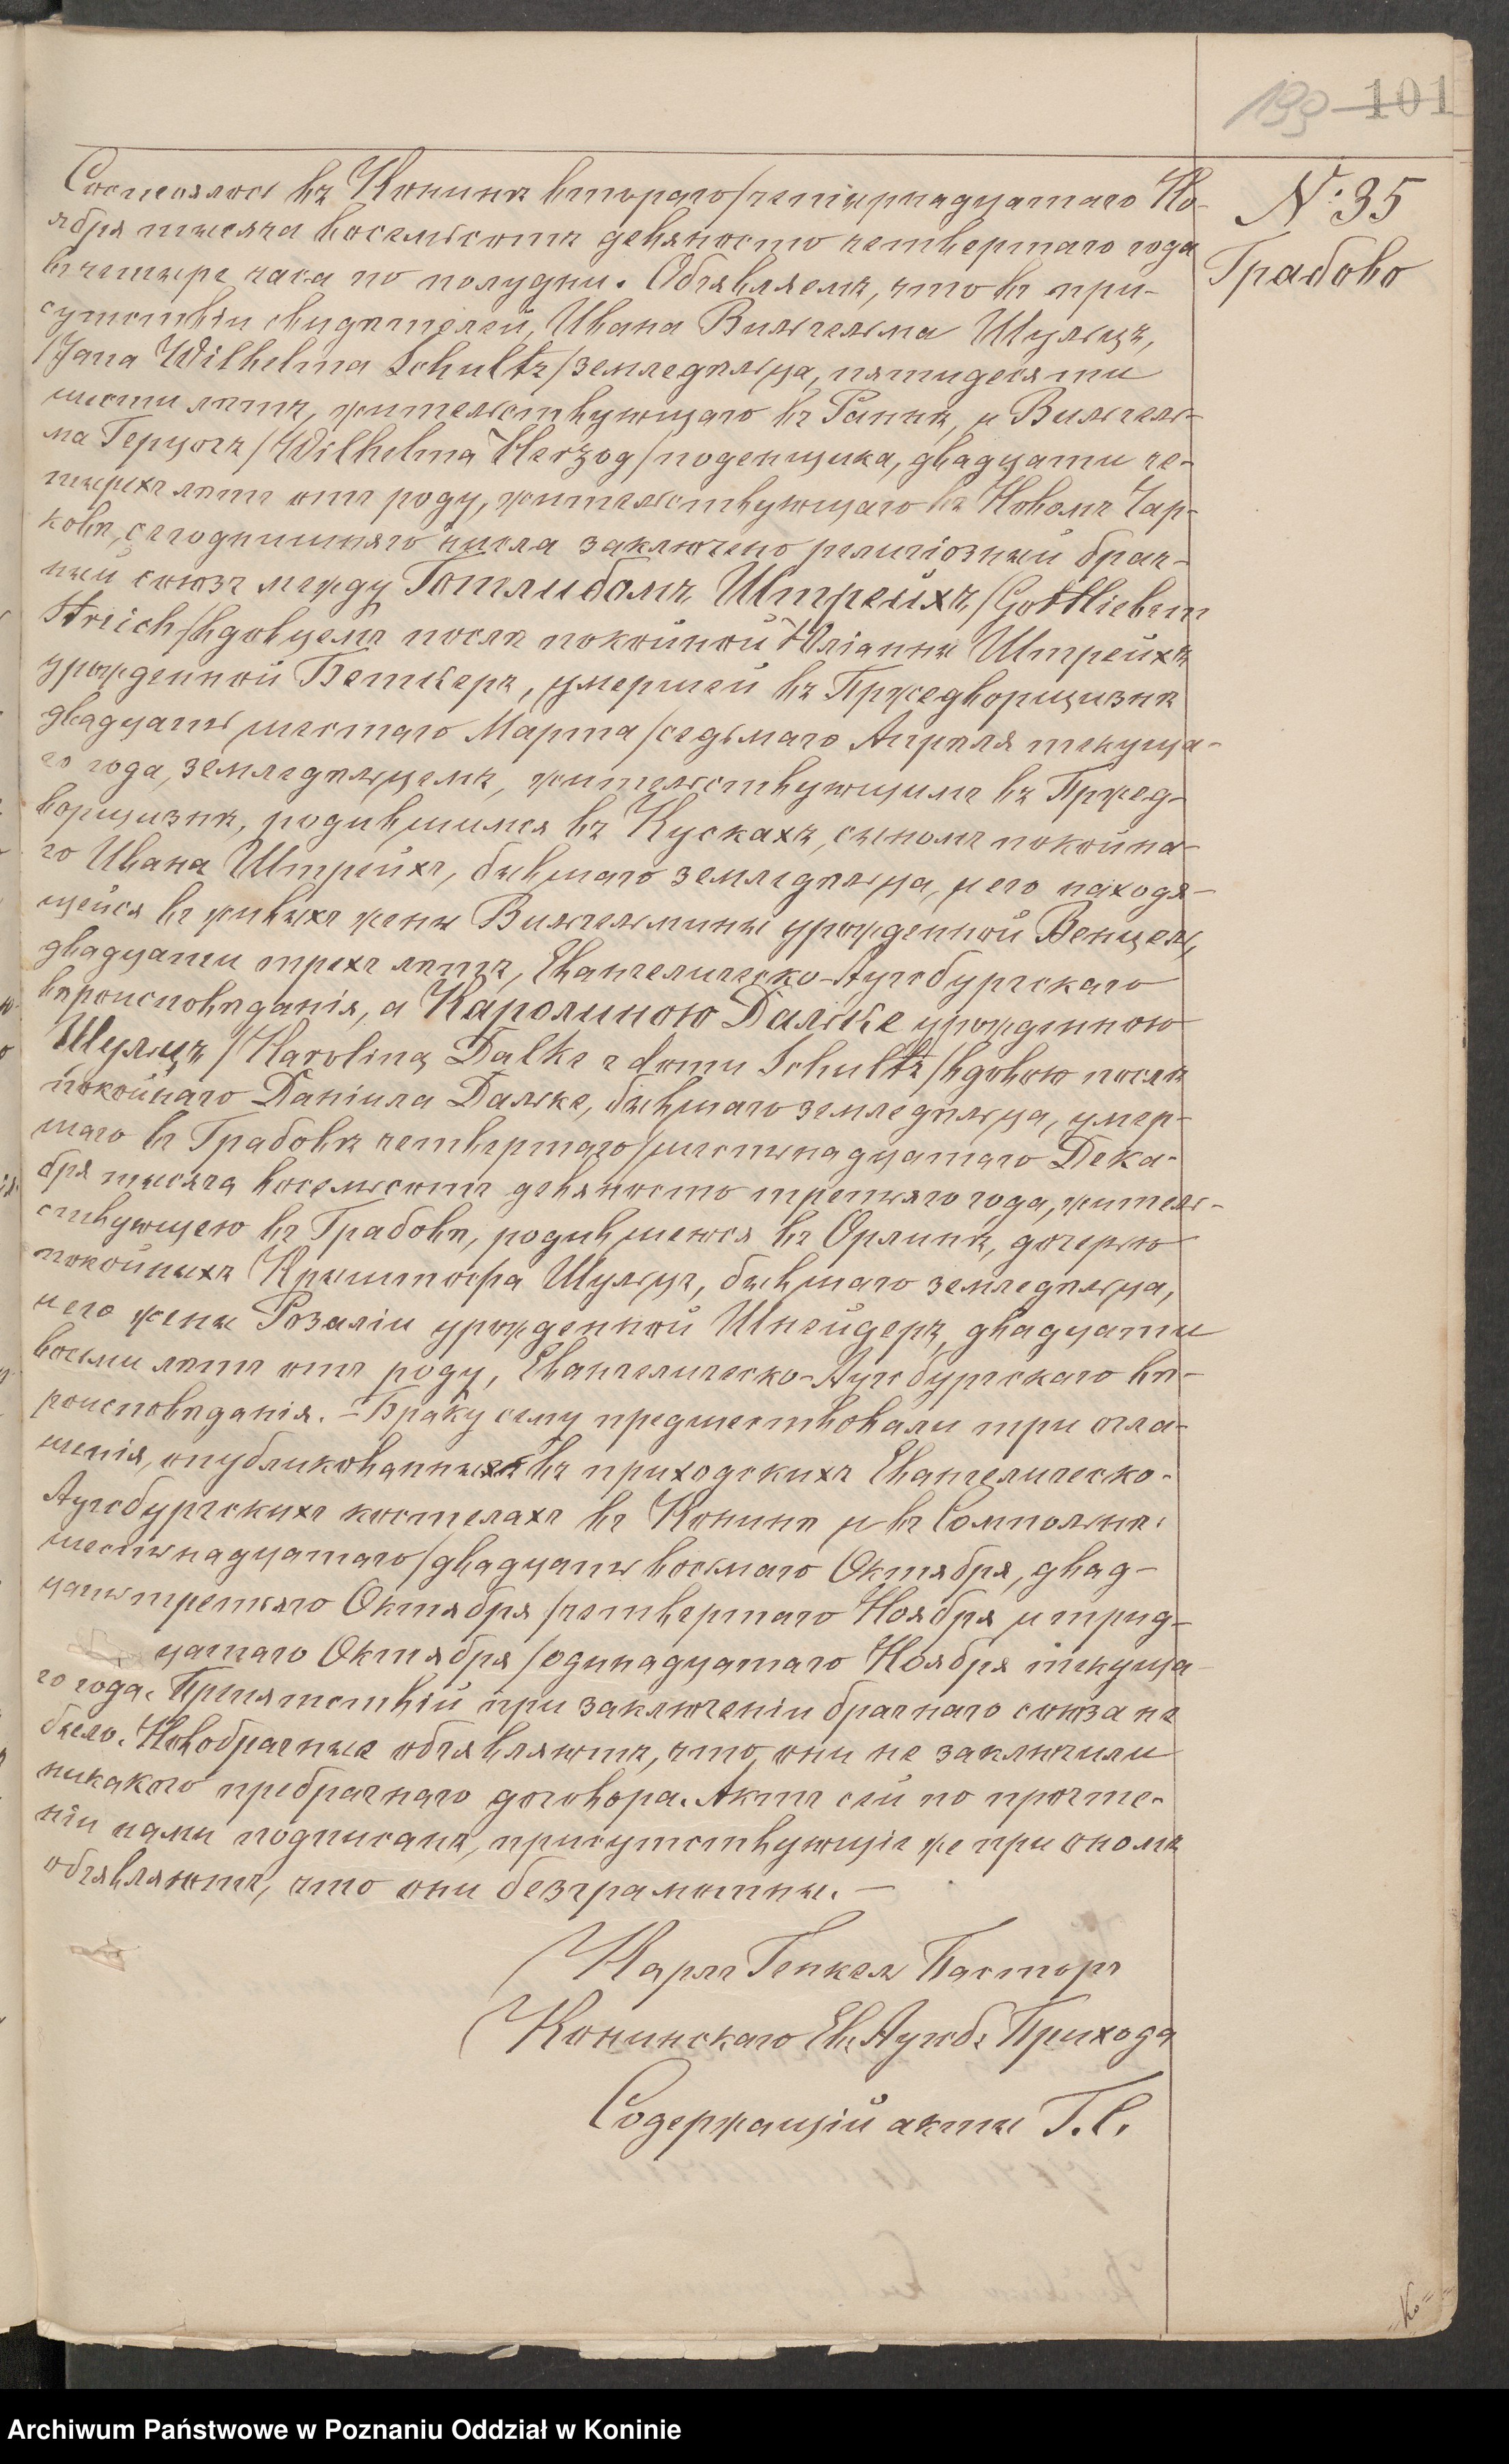 133 101
№ 35
Грабово
Состоялось въ Конинѣ второго/четырнадцатаго Но-
ября тысяча восемьсотъ девяносто четвертаго года
въ четыре часа по полудни. Объявляемъ, что въ при-
сутствіи свидѣтелей, Ивана Вильгельма Шульцъ,
/Jana Wilhelma Schultz/ земледѣльца, пятидесяти
шести лѣтъ, жительствующаго въ Ранкѣ, и Вильгель-
ма Герцогъ /Wilhelma Herzog/ поденщика, двадцати че-
тырехъ лѣтъ отъ роду, жительствующаго въ Новомъ Чар-
ковѣ, сегоднишняго числа заключено религіозный брач-
ный союзъ между Готлибомъ Штрейхъ /Gottliebem
Streich/ вдовцемъ послѣ покойной Юліанны Штрейхъ
урожденной Беткеръ, умершей въ Пржедворщизнѣ
двадцать шестаго Марта/седьмаго Апрѣля текуща-
го года, земледѣльцемъ, жительствующимъ въ Пржед-
ворщизнѣ, родившимся въ Кускахъ, сыномъ покойна-
го Ивана Штрейхъ, бывшаго земледѣльца, и его находя-
щейся въ живыхъ жены Вильгельмины урожденной Венцель,
двадцати трехъ лѣтъ, Евангелическо-Аугсбургскаго
вѣроисповѣданія, а Каролиною Дальке урожденною
Шульцъ /Karoliną Dalke z domu Schultz/ вдовою послѣ
покойнаго Даніила Дальке, бывшаго земледѣльца, умер-
шаго въ Грабовѣ четвертаго/шестнадцатаго Дека-
бря тысяча восемьсотъ девяносто третьяго года, житель-
ствующею въ Грабовѣ, родившеюся въ Орлинѣ, дочерью
покойныхъ Крыштофа Шульцъ, бывшаго земледѣльца,
и его жены Розаліи урожденной Шнейдеръ, двадцати
восьми лѣтъ отъ роду, Евангелическо-Аугсбургскаго вѣ-
роисповѣданія. - Браку сему предшествовали три огла-
шенія, опубликованныхъ въ приходскихъ Евангелическо-
Аугсбургскихъ костелахъ въ Конинѣ и въ Сомпольнѣ:
шестнадцатаго/двадцать восьмаго Октября, двад-
цать третьяго Октября/четвертаго Ноября и трид-
цатаго Октября/одинадцатаго Ноября текуща-
го года. Препятствій при заключеніи брачнаго союза не
было. Новобрачные объявляютъ, что они не заключили
никакого предбрачнаго договора. Актъ сей по прочте-
ніи нами подписанъ, присутствующіе же при ономъ
объявляютъ, что они безграмотны. -
Карлъ Генкель Пасторъ
Конинскаго Ев. Аугсб. Прихода
Содержащій акты Г. С.
Archiwum Państwowe w Poznaniu Oddział w Koninie